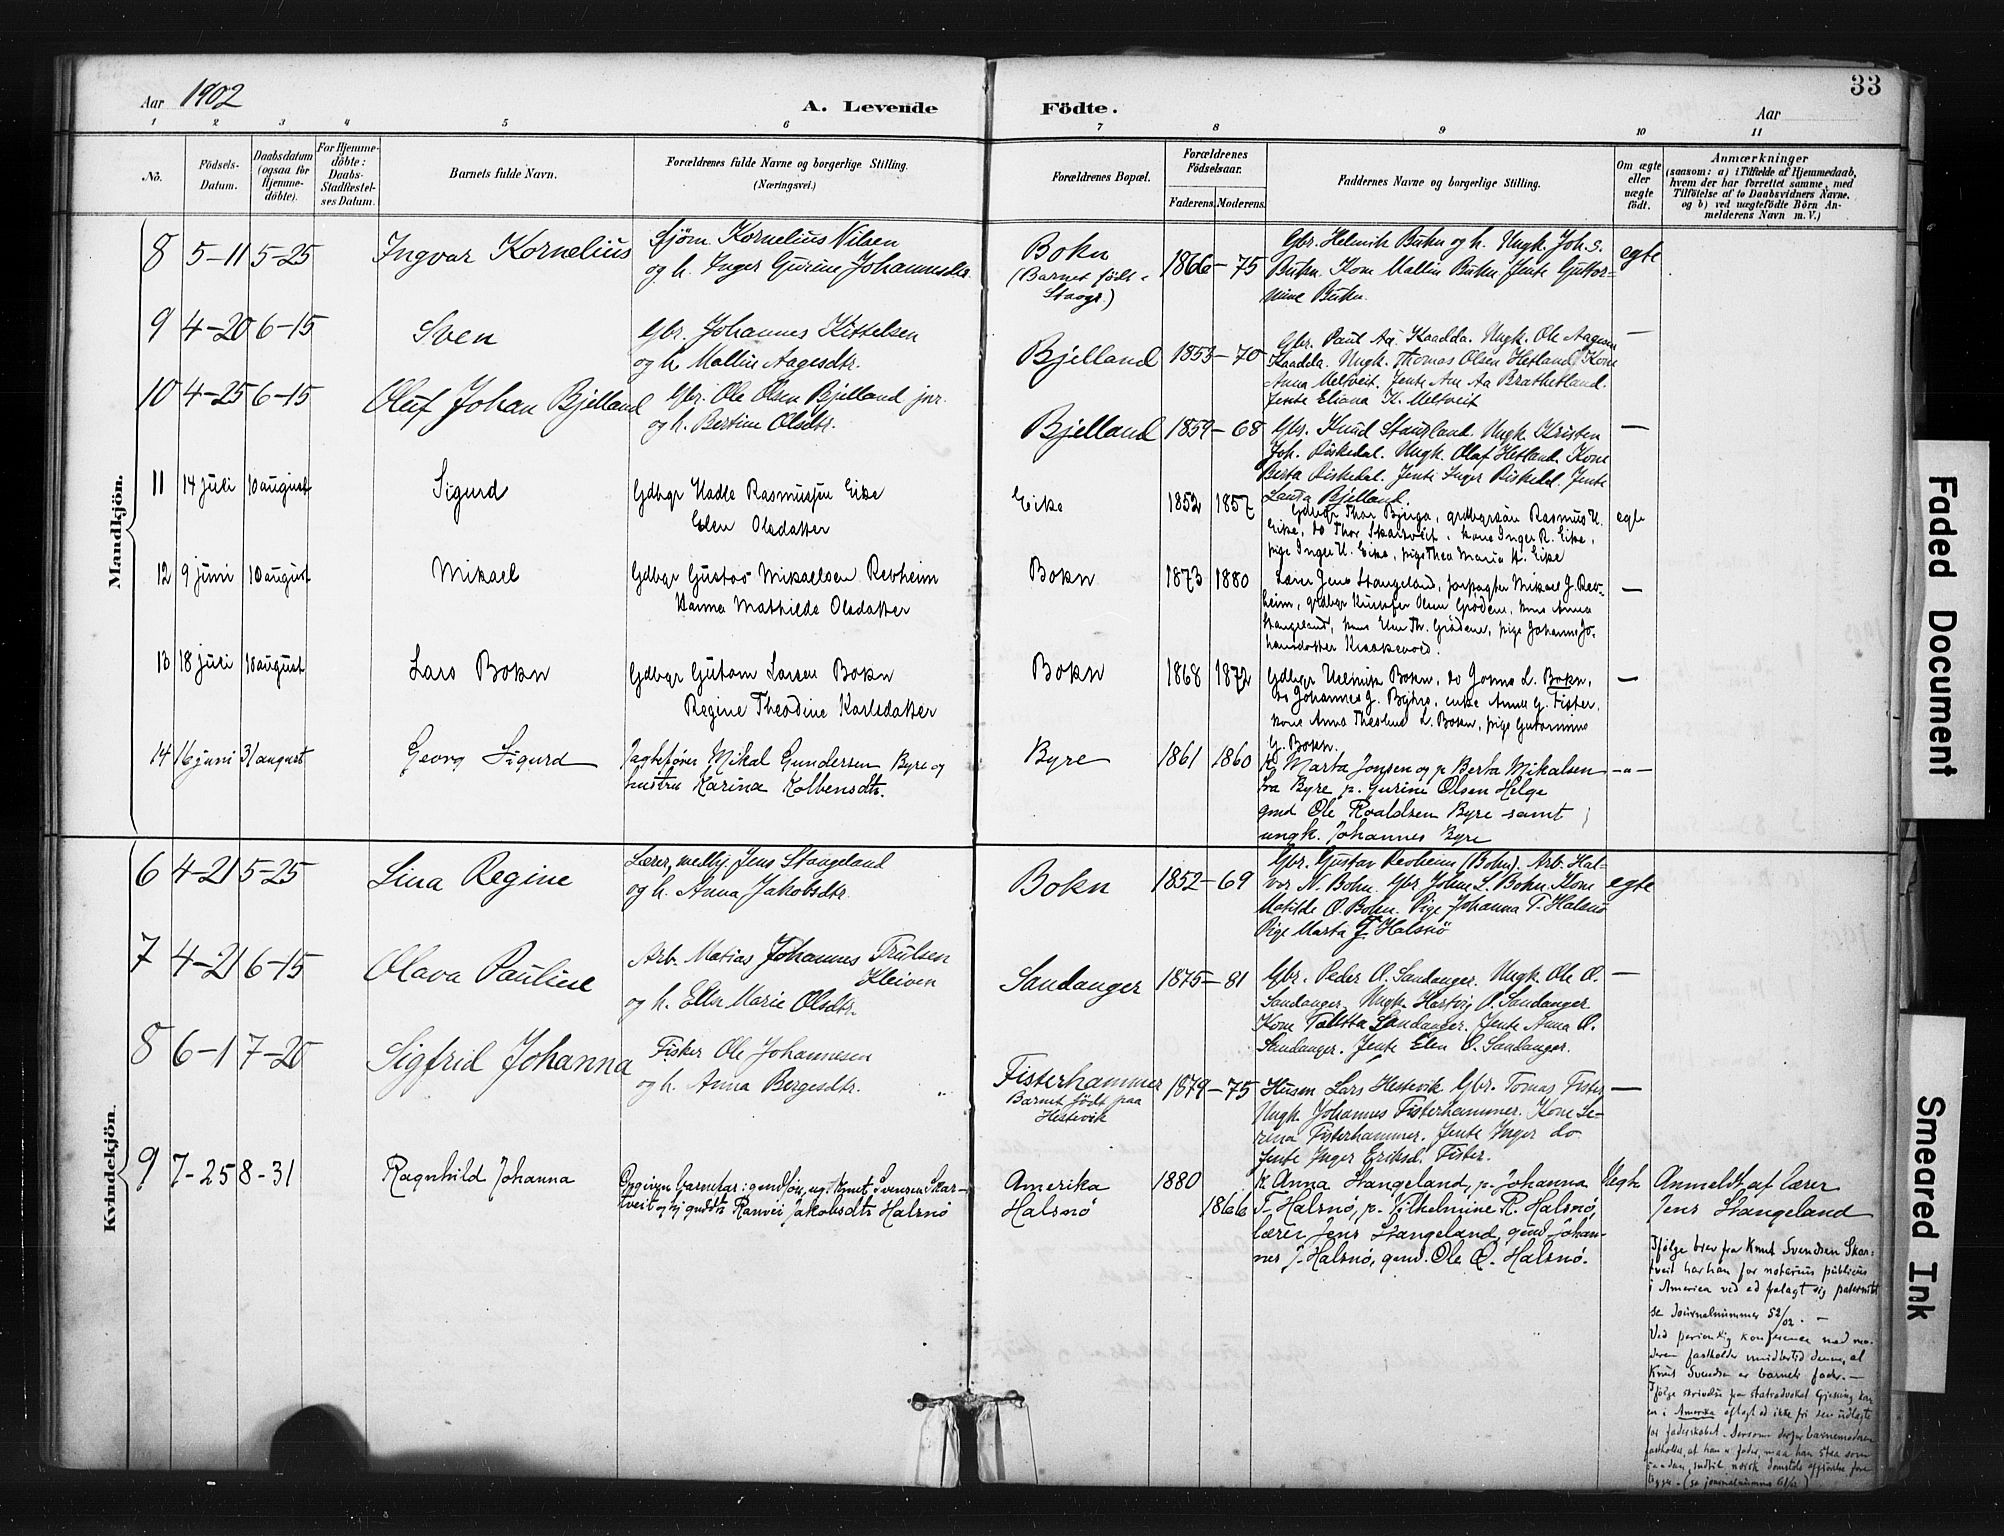 33
Aar 1902
A. Levende Födte.
Aar
1 2 3 4 5 6 7 8 9 10 11
No.
Födsels-Datum.
Daabsdatum (ogsaa for Hjemme-döbte).
For Hjemme-döbte: Daabs-Stadfæstel-ses Datum.
Barnets fulde Navn.
Forældrenes fulde Navne og borgerlige Stilling.
(Næringsvei.)
Forældrenes Bopæl.
Forældrenes Födselsaar.
Faderens. Moderens.
Faddernes Navne og borgerlige Stilling.
Om ægte eller uægte födt.
Anmærkninger
(saasom: a) i Tilfælde af Hjemmedaab,
hvem der har forrettet samme, med
Tilföielse af to Daabsvidners Navne,
og b) ved uægtefödte Börn An-
melderens Navn m. V.)
Mandkjön.
8 5-11 5-25 Ingvar Kornelius
Sjöm. Kornelius Nilsen
og h. Inger Gurine Johannesdtr.
Bokn
(Barnet födt i
Stavgr.)
1866-75
Gbr. Helmik Bukn og h. Ungk. Joh. S.
Bukn. Kone Mallin Bukn. Jente Guttor-
mine Bukn.
egte
9 4-20 6-15 Sven
Gbr. Johannes Kittelsen
og h. Mallin Aagesdtr.
Bjelland 1853-70
Gbr. Paul Aa. Kaadda. Ungk. Ole Aagesen
Kaadda. Ungk. Thomas Olsen Hetland. Kone
Anna Meltveit. Jente Am Aa Brathetland.
Jente Eliana K. Meltveit
—
10 4-25 6-15 Oluf Johan Bjelland
Gbr. Ole Olsen Bjelland jnr.
og h. Bertine Olsdtr.
Bjelland 1859-68
Gbr. Knud Stangland. Ungk. Kristen
Joh. Riskedal. Ungk. Olaf Hetland. Kone
Berta Riskedal. Jente Inger Riskedal. Jente
Laura Bjelland.
—
11 14 juli 10 august Sigurd
Gdbgr Hadle Rasmussen Eike
Elen Olsdatter
Eike 1852 1857
Gdbgr Thor Bjerga, grdbgrsön Rasmus H.
Eike, do Thor Skartveit, kone Inger R. Eike,
pige Inger H. Eike, pige Thea Maria H. Eike
egte
12 9 juni 10 august Mikael
Gdbgr Gustav Mikaelsen Revheim
Hanna Mathilde Olsdatter
Bokn 1873 1880
Lærer Jens Stangeland, forpagter Mikael J. Rev-
heim, grdbgr Kristofer Olsen Grödem, kone Anna
Stangeland, kone Elen Th. Grödem, pige Johanne Jo-
hansdatter Kraakevold.
—
13 18 juli 10 august Lars Bokn
Gdbgr Gutorm Larsen Bokn
Regine Theodine Karlsdatter
Bokn 1868 1872
Gdbgr Helmik Bokn, do Jonas L. Bokn,
do Johannes J. Byhre, enke Anna G. Fister,
kone Anna Theoline L. Bokn, pige Gutormine
G. Bokn.
—
14 16 juni 31 august Georg Sigurd
Jagtefører Mikal Gundersen Byre og
hustru Karina Kolbensdtr.
Byre 1861 1860
K. Marta Jonsen og p. Berta Mikalsen
fra Byre p. Gurine Olsen Helge
gmd Ole Roaldsen Byre samt
ungk. Johannes Byre
-"-
Kvindekjön.
6 4-21 5-25 Lina Regine
Lærer, medhj. Jens Stangeland
og h. Anna Jakobsdtr.
Bokn 1852-69
Gbr. Gustav Revheim (Bohn). Arb. Hal-
vor N. Bohn. Gbr John L. Bohn. Kone
Matilde O. Bohn. Pige Johanna T. Halsnö
Pige Marta J. Halsnö
egte
7 4-21 6-15 Olava Pauline
Arb. Matias Johannes Trulsen
Kleiven
og h. Ellen Marie Olsdtr.
Sandanger 1875-81
Gbr. Peder O. Sandanger. Ungk. Ole O.
Sandanger. Ungk. Hartvig O. Sandanger.
Kone Tolletta Sandanger. Jente Anna O.
Sandanger. Jente Elen O. Sandanger.
—
8 6-1 7-20 Sigfrid Johanna
Fisker Ole Johannesen
og h. Anna Bergesdtr.
Fisterhammer
Barnet födt paa
Hestevik
1879-75
Husm. Lars Hestevik Gbr. Tomas Fister
Ungk. Johannes Fisterhammer. Kone Se-
rina Fisterhammer. Jente Inger do
Jente Inger Eriksd. Fister.
—
9 7-25 8-31 Ragnhild Johanna
Opgiven barnefar: grndsøn, ug. Knut Svensen Skar-
tveit og pj. grddtr Ranvei Jakobsdtr Halsnö
Amerika
Halsnö
1880
1866
K. Anna Stangeland, p. Johanna
T. Halsnö, p. Vilhelmine R. Halsnö,
lærer Jens Stangeland, gmd. Johan-
nes J. Halsnö, gmd. Ole O. Halsnö.
Uegte
Anmeldt af lærer
Jens Stangeland
Ifølge brev fra Knut Svendsen Skar-
tveit har han for notarius publicus
i America ved ed fralagt sig paternitet
se Journalnummer 52/02. —
Ved personlig konference med mo-
deren fastholder imidlertid denne, at
Knut Svendsen er barnets fader. —
Ifølge skrivelse fra statsadvokat Gjessing kan
en i Amerika aflagt ed ikke fri den udlagte
for faderskabet. Dersom derfor barnemoderen
fastholder, at han er fader, maa han staa som
saadan, indtil norsk domstols afgjörelse fore-
ligger. (se journalnummer 61/02)
Faded Document
Smeared Ink